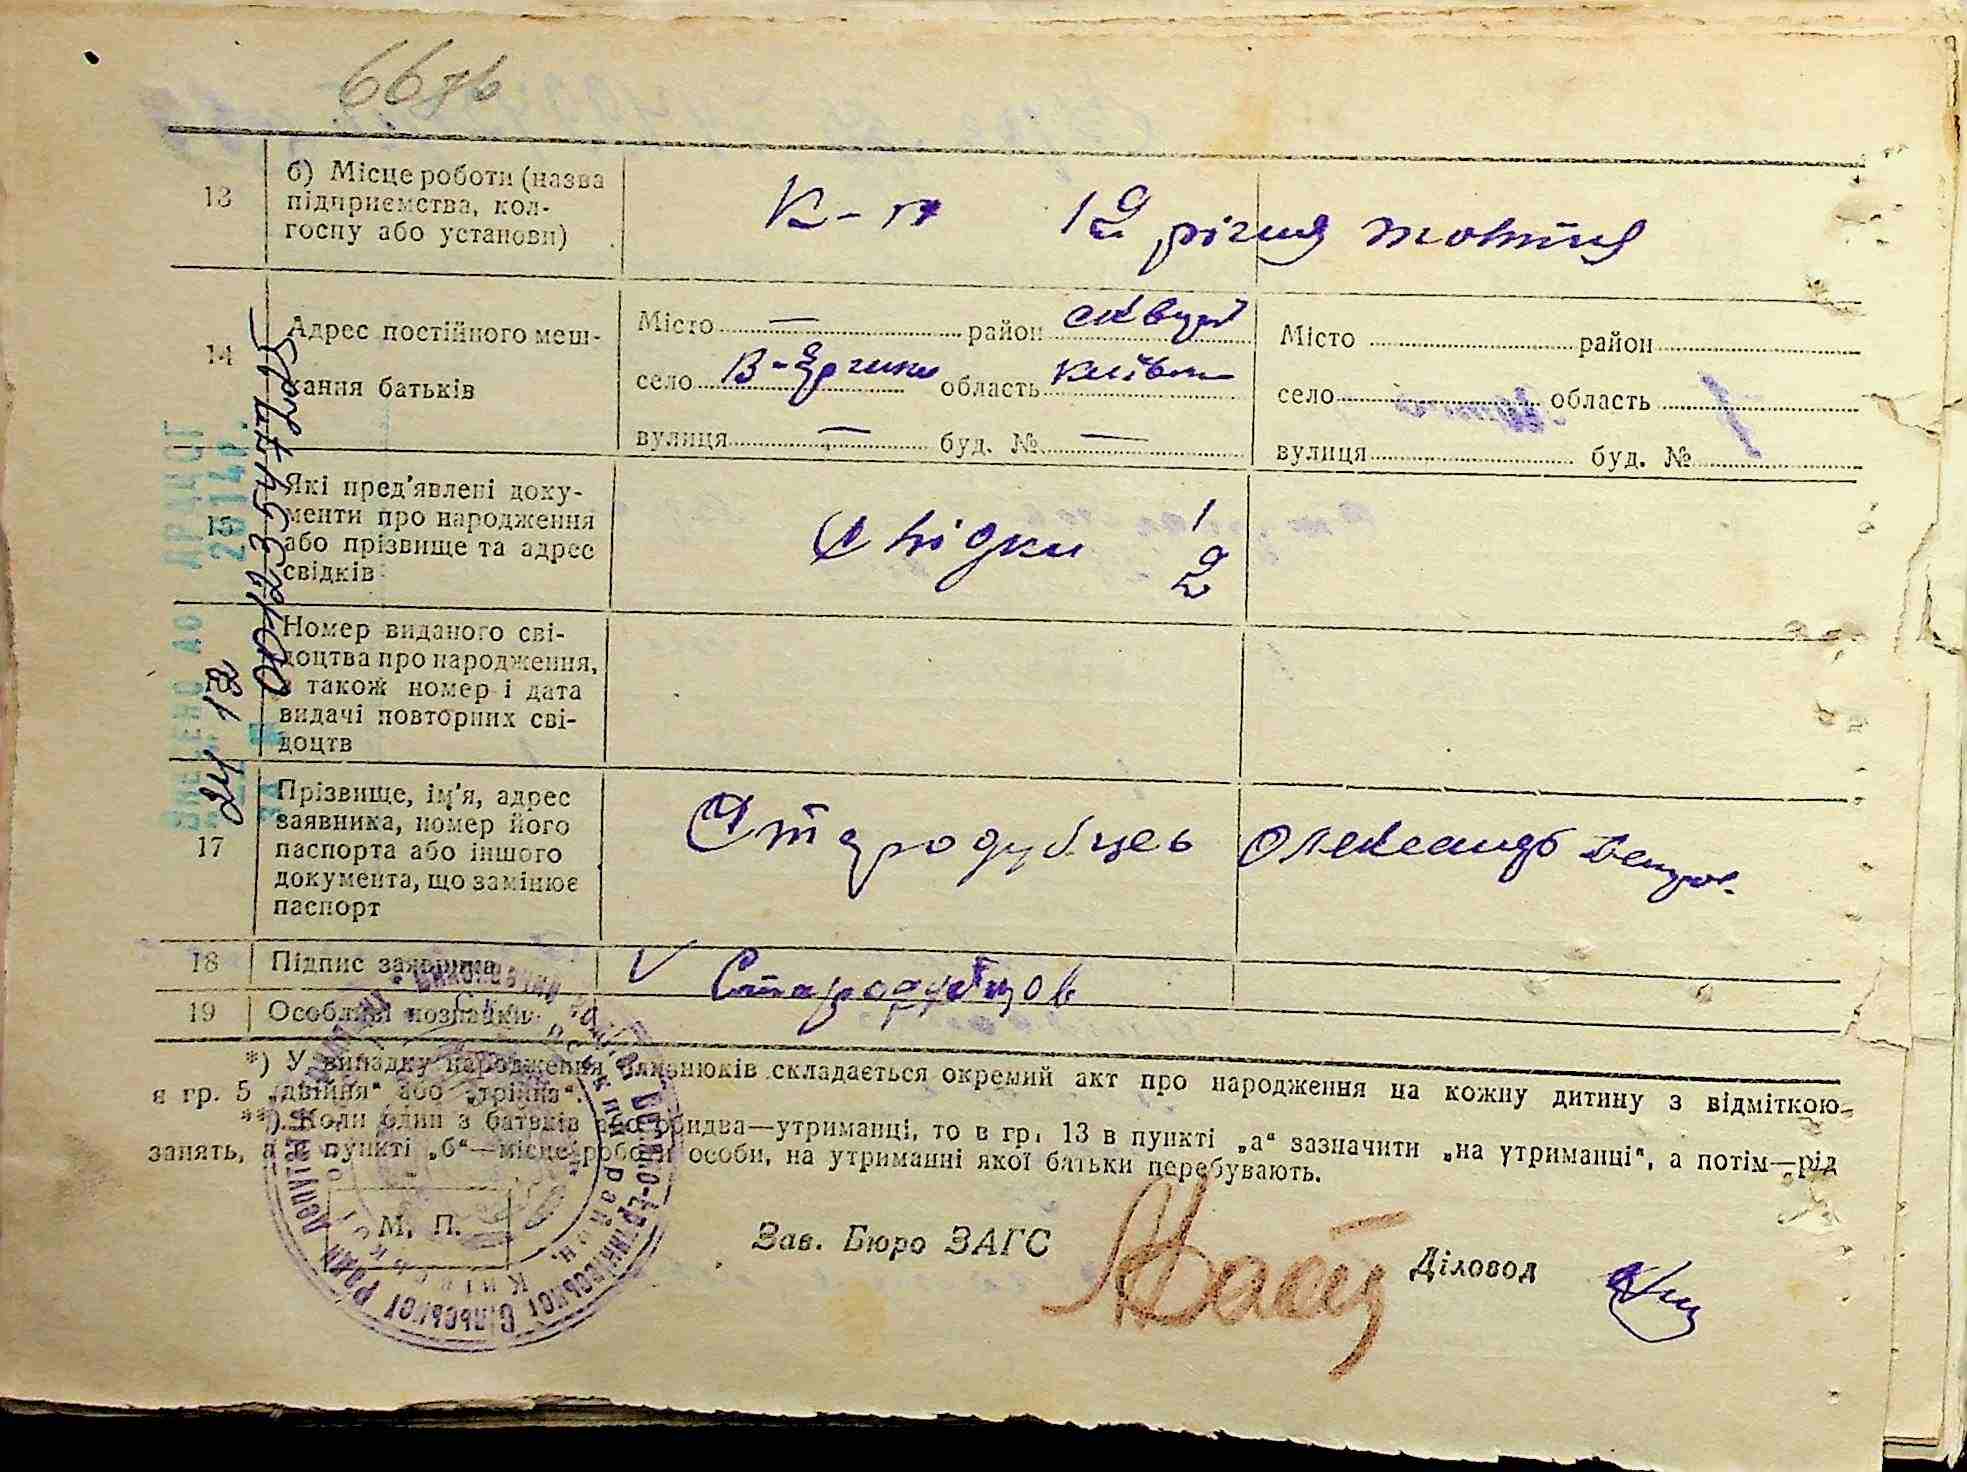 66
13 б) Місце роботи (назва
підприємства, кол-
госпу або установи)
К-п 12 річчя жовтня
14 Адрес постійного меш-
кання батьків
Місто — район Сквир
село В-Єрчики область Київськ
вулиця — буд. № —
Місто район
село область
вулиця буд. №
15 Які пред'явлені доку-
менти про народження
або прізвище та адрес
свідків
Свідки 1
2
Номер виданого сві-
доцтва про народження,
а також номер і дата
видачі повторних сві-
доцтв
17 Прізвище, ім'я, адрес
заявника, номер його
паспорта або іншого
документа, що замінює
паспорт
Стародубцев Олександр
18 Підпис заявника
V Стародубцов
19 Особливі познадки
*) У випадку народження близнюків складається окремий акт про народження на кожну дитину з відміткою
я гр. 5 „двійня“ або „трійня“.
**) Коли один з батьків або обидва—утриманці, то в гр. 13 в пункті „а“ зазначити „на утриманці“, а потім—рід
занять, а в пункті „б“—місце роботи особи, на утриманні якої батьки перебувають.
М. П.
Зав. Бюро ЗАГС
Діловод
ВНЕСЕНО ДО ДРАЦСГ
24 12 2014р.
ЗА №
00123547785